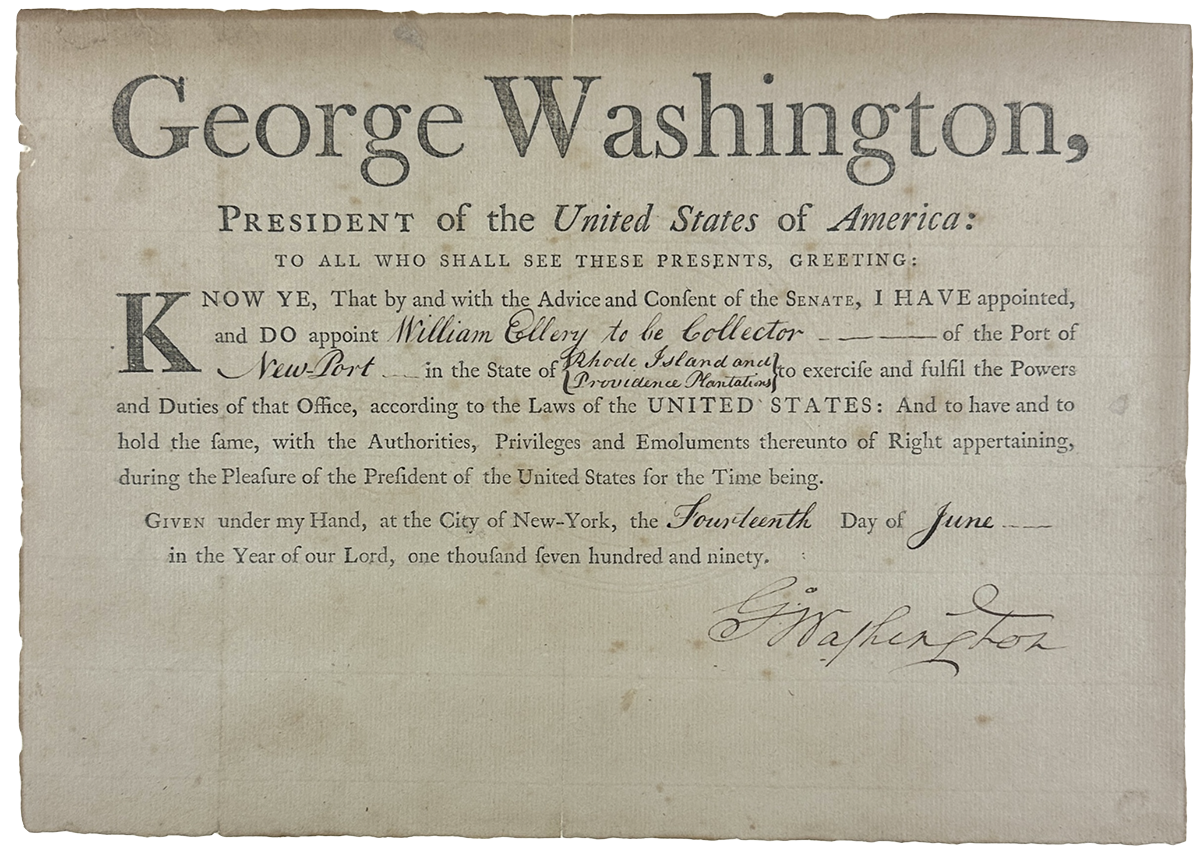 George Washington,
PRESIDENT of the United States of America:
TO ALL WHO SHALL SEE THESE PRESENTS, GREETING:
KNOW YE, That by and with the Advice and Conſent of the SENATE, I HAVE appointed,
and DO appoint William Ellery to be Collector — — — of the Port of
New-Port — in the State of {Rhode Island and Providence Plantations} to exerciſe and fulfil the Powers
and Duties of that Office, according to the Laws of the UNITED STATES: And to have and to
hold the ſame, with the Authorities, Privileges and Emoluments thereunto of Right appertaining,
during the Pleaſure of the Preſident of the United States for the Time being.
GIVEN under my Hand, at the City of New-York, the Fourteenth Day of June —
in the Year of our Lord, one thouſand ſeven hundred and ninety.
Go Waſhington